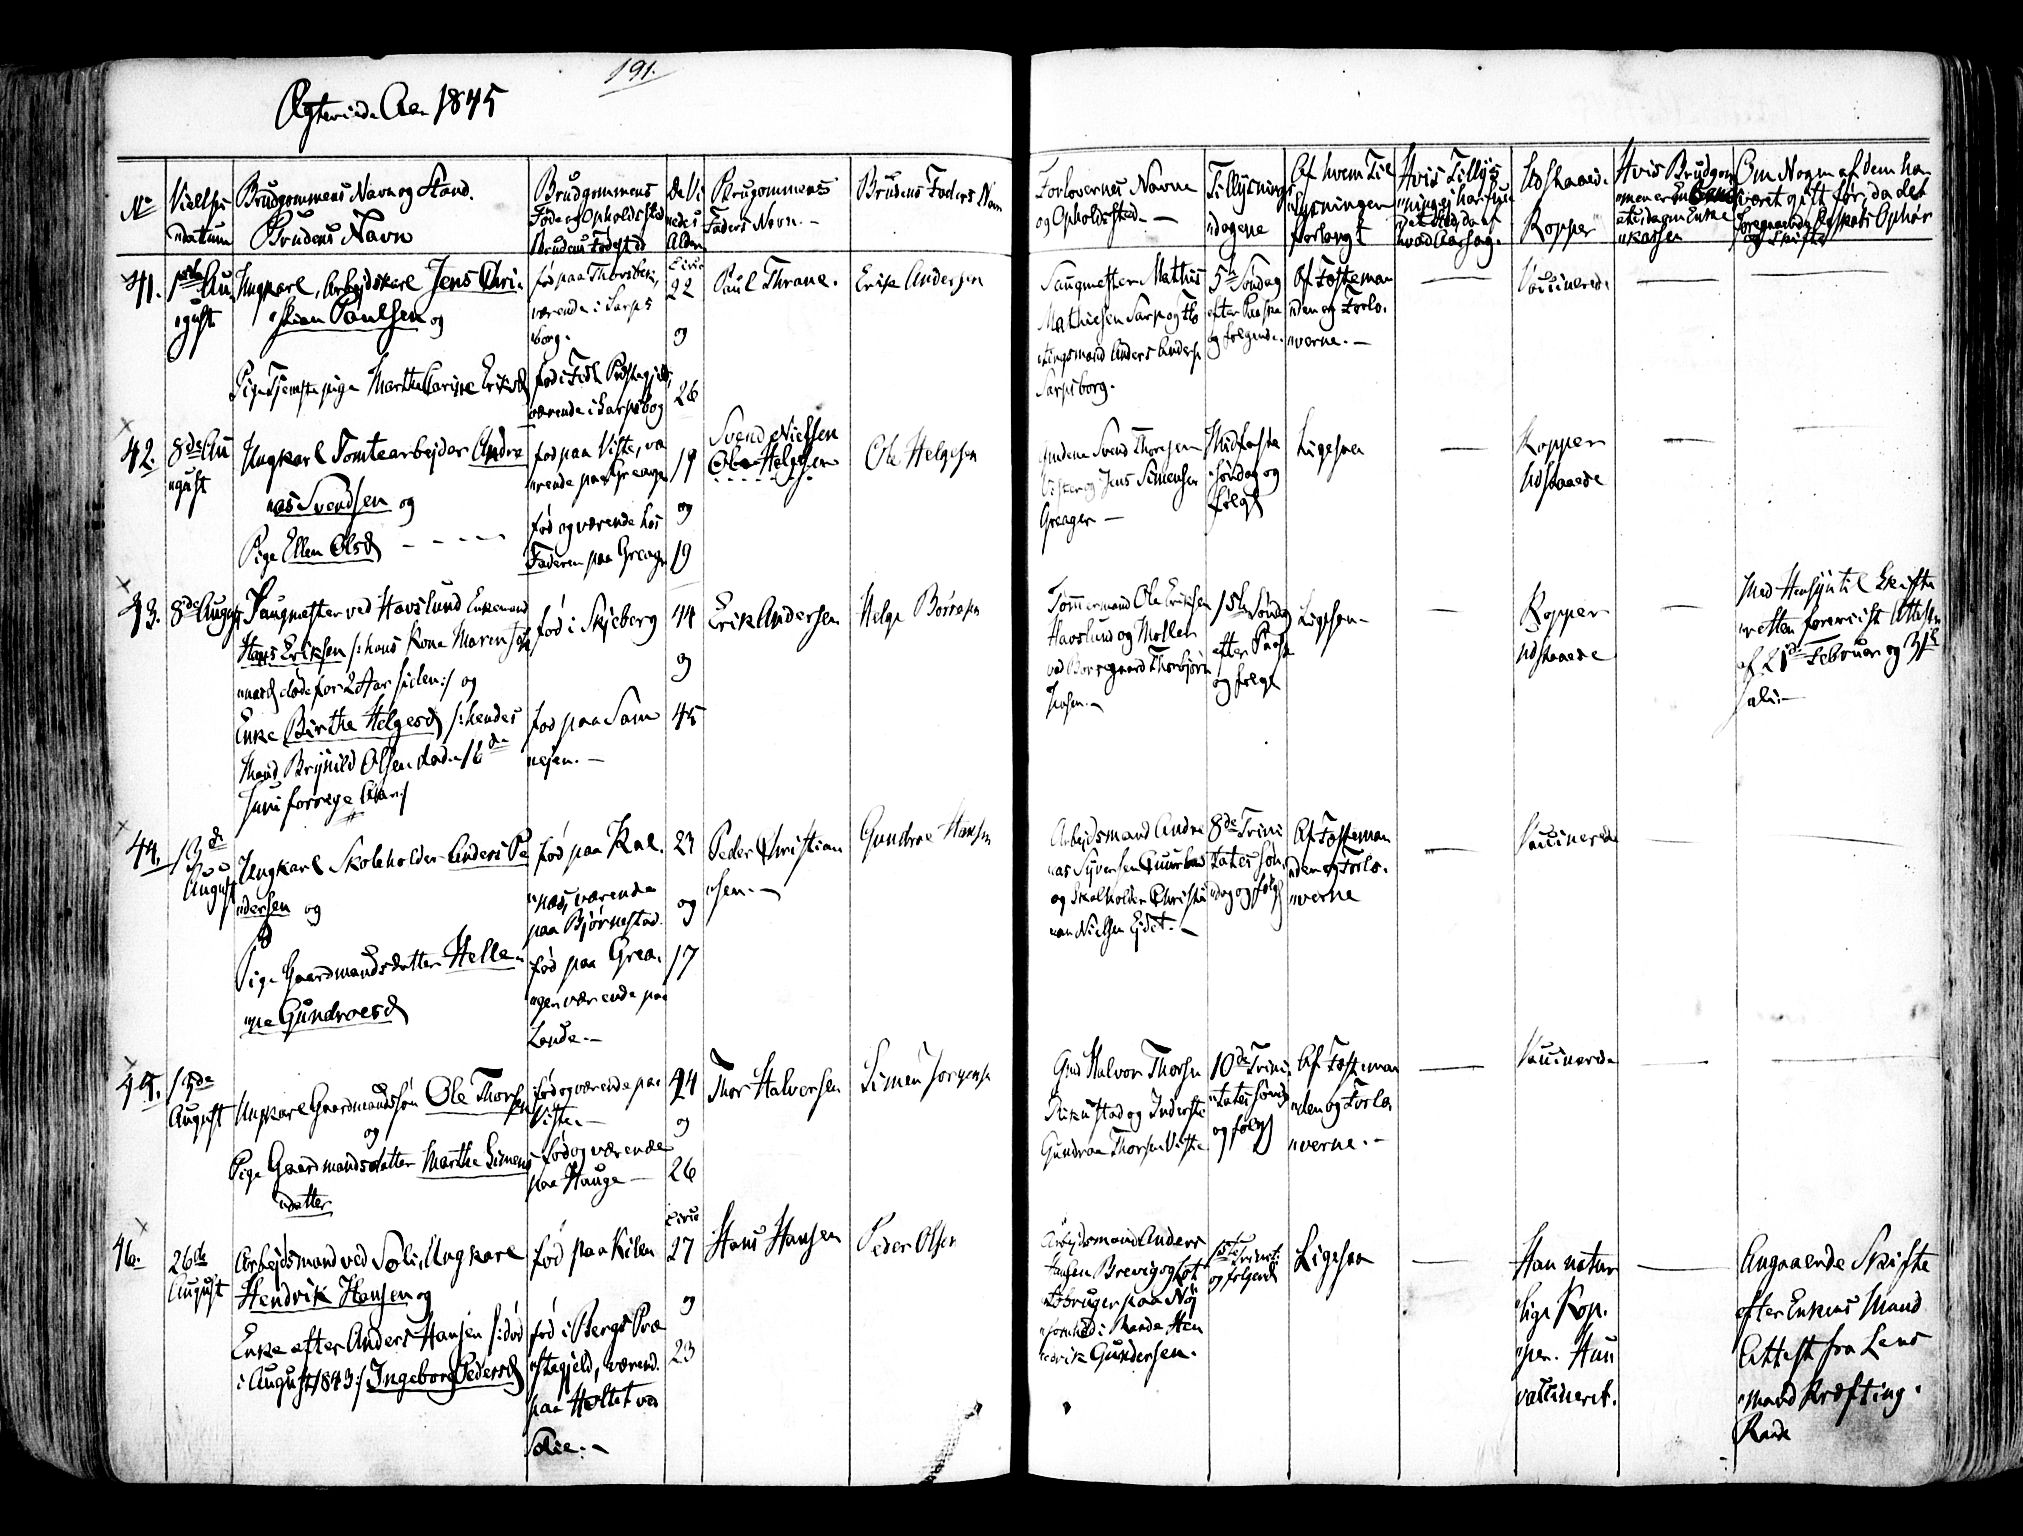 191.
Ægteviede Aar 1845
No
Vielses
datum
Brudgommens Navn og Stand.
Brudens Navn
Brudgommens
Føde og Opholdssted
Brudens Fødested
De Vi
edes
Alder
Brugommens
Faders Navn.
Brudens Faders Navn
Forlovernes Navne
og Opholdssted.
Tillysnings
dagene
Af hvem Til
lysningen
forlangt
Hvis Tillys
ning ej har fun
det Sted, da af
hvad Aarsag.
Udstaaede
Kopper
Hvis Brudgom
men er Enkemand
Enke
kassen
Om Nogen af dem ha
været gift før, da det
foregaaende Egteskabs Ophør
og Skifte
41.
1ste Au
gust
Ungkarl, Arbejdskarl Jens Chri-
stian Paulsen og
Pige Tjenstepige Marthe Carine Eriksd
fød paa Thorsbek,
værende i Sarps
borg.
fød i Id Præstegjeld,
værende i Sarpsborg
Circa
22
og
26
Paul Thrane.
Erik Andersen
Saugmester Mathis
Mathiesen Sarp og Th
tingsmand Anders Anders
Sarpsborg.
5te Søndag
efter Paaske
og følgende.
Af Fosteman
den og Forlo-
verne.
Vaccinerede
42.
8de Au
gust
Ungkarl Tomtearbejder Andre
as Svendsen og
Pige Ellen Olsd
fød paa Viste, væ
rende paa Greager
fød og værende hos
Faderen paa Greager
19
og
19
Svend Nielsen
Ole Helgesen
Ole Helgesen
Gudene Svend Thoresen
Viste og Jens Simensen
Greager
Midfaste
søndag og
følg
Ligesaa
Kopper
Udstaaede
43.
8de August
Saugmester ved Hafslund Enkemand
Hans Eriksen /: hans Kone Maren
døde for 2 Aar siden :/ og
Enke Birthe Helgesd /: hendes
Mand Brynild Olsen døde 16de
Juni forrige Aar :/
fød i Skjeberg
fød paa Sam
nesen.
44
og
45
Erik Andersen
Helge Børresen
Tømmermand Ole Eriksen
Havslund og Møller
ved Borregaard Thorbjørn
15de Søndag
efter Paaske
og følg
Ligesaa
Kopper
Udstaaede
Med Hensyn til Skifte
retten foreviist Attester
af 21de Februar og 31te
Juli.
44.
13de
August
Ungkarl Skoleholder Anders Pe
dersen og
Pige Gaardmandsdatter Helle-
ne Gundroesd
fød paa Kal-
næs, værende
paa Bjørnestad.
fød paa Grea-
ger værende paa
Lande.
23
og
17
Peder Christian
sen.
Gundroe Hansen
Arbejdsmand Andre
as Syversen
og Skoleholder Christi
an Nielsen Eidet.
8de Trini
tatis søn-
dag og følg
Af Fosteman
den og Forlo-
verne
Vaccinerede
45.
15de
August
Ungkarl Gaardmandssøn Ole Thorsen
og
Pige Gaardmandsdatter Marthe Simens
datter
fød og værende paa
Viste.
fød og værende
paa Hauge
24
og
26
Thor Halversen
Simen Jørgensen
Gud Halvor Thorsen
Rikustad og Inderste
Gundroe Thorsen Viste
10de Trini-
tatis sønd
og følg
Af Fosteman
den og Forlo-
verne.
Vaccinerede
46.
26de
August
Arbejdsmand ved Solie, Ungkarl
Hendrik Hansen og
Enke efter Anders Hansen /: død
i August 1843 :/ Ingeborg Pedersd
fød paa Kilen
fød i Bergs Præ
stegjeld, værend
paa Holtet ved
Solie.
Circa
27
og
23
Hans Hansen
Peder Olsen
Arbejdsmand Anders
Hansen Brevig og
bruger paa Nøj
somhed i Rande Hen
drik Gundersen.
1ste Trinit.
og følgend
Ligesaa
Han natur
lige Kop-
per. Hun
vaccineret.
Angaaende Skifte
efter Enkens Mand
Attest fra Lens
mand Kræfting.
Rande